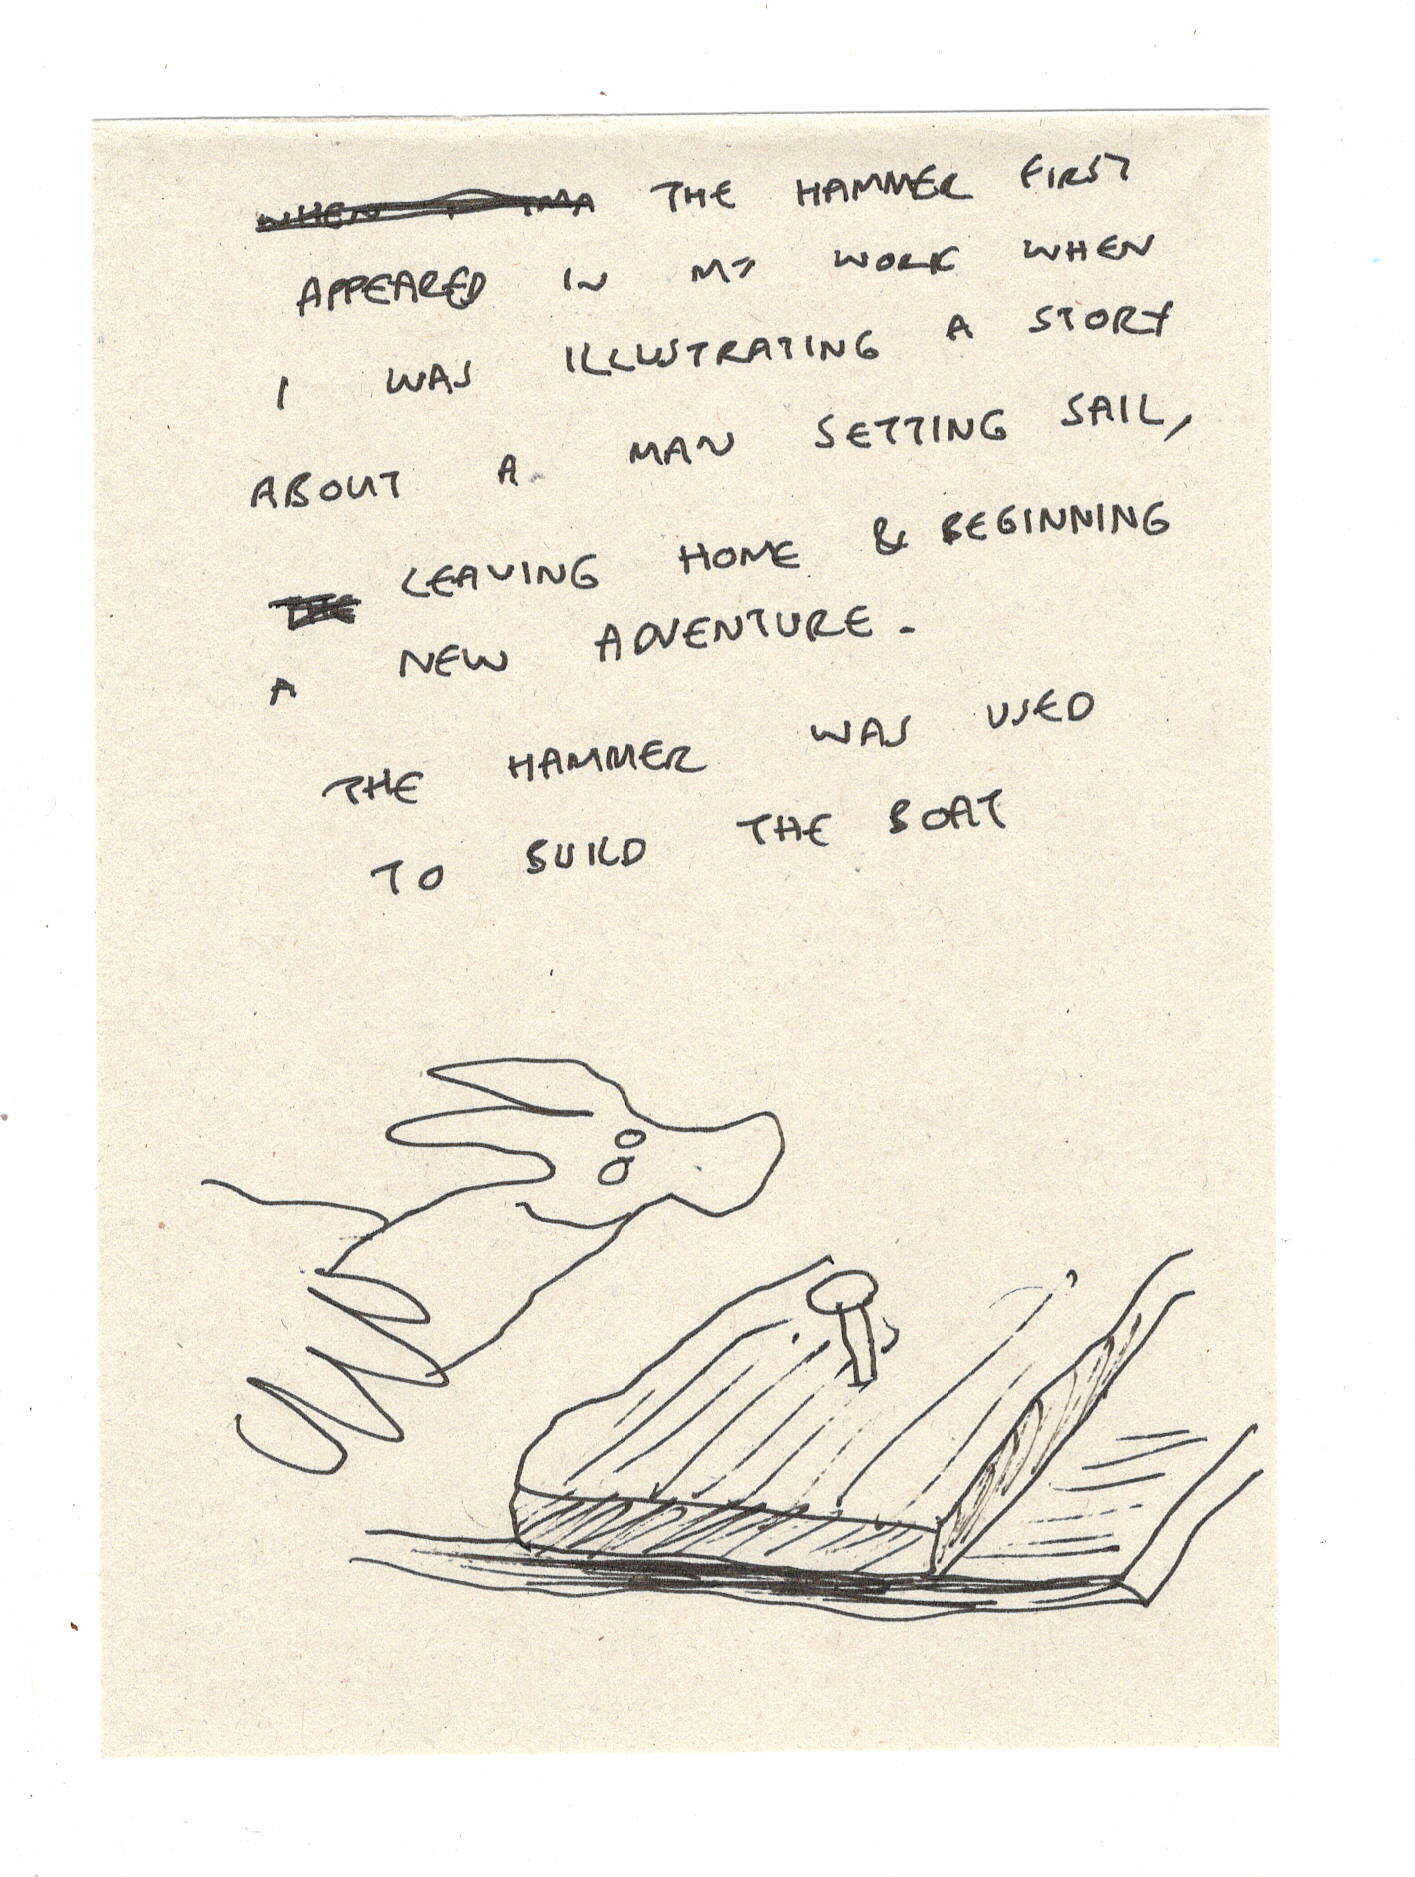 THE HAMMER FIRST
APPEARED IN MY WORK WHEN
I WAS ILLUSTRATING A STORY
ABOUT A MAN SETTING SAIL,
LEAVING HOME & BEGINNING
A NEW ADVENTURE.
THE HAMMER WAS USED
TO BUILD THE BOAT